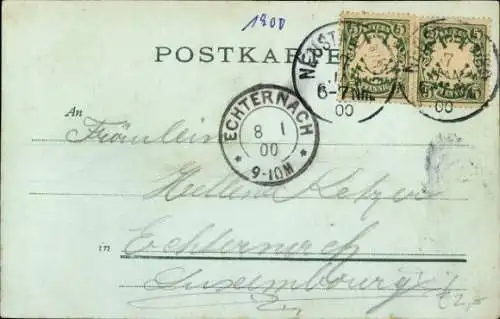 1900
POSTKARTE
NEUST
7
6-7 Nm.
00
5 5
7
00
ECHTERNACH
8 1
00
9-10M
An
Fräulein
Helene Ketzer
in Echternach
Luxembourg